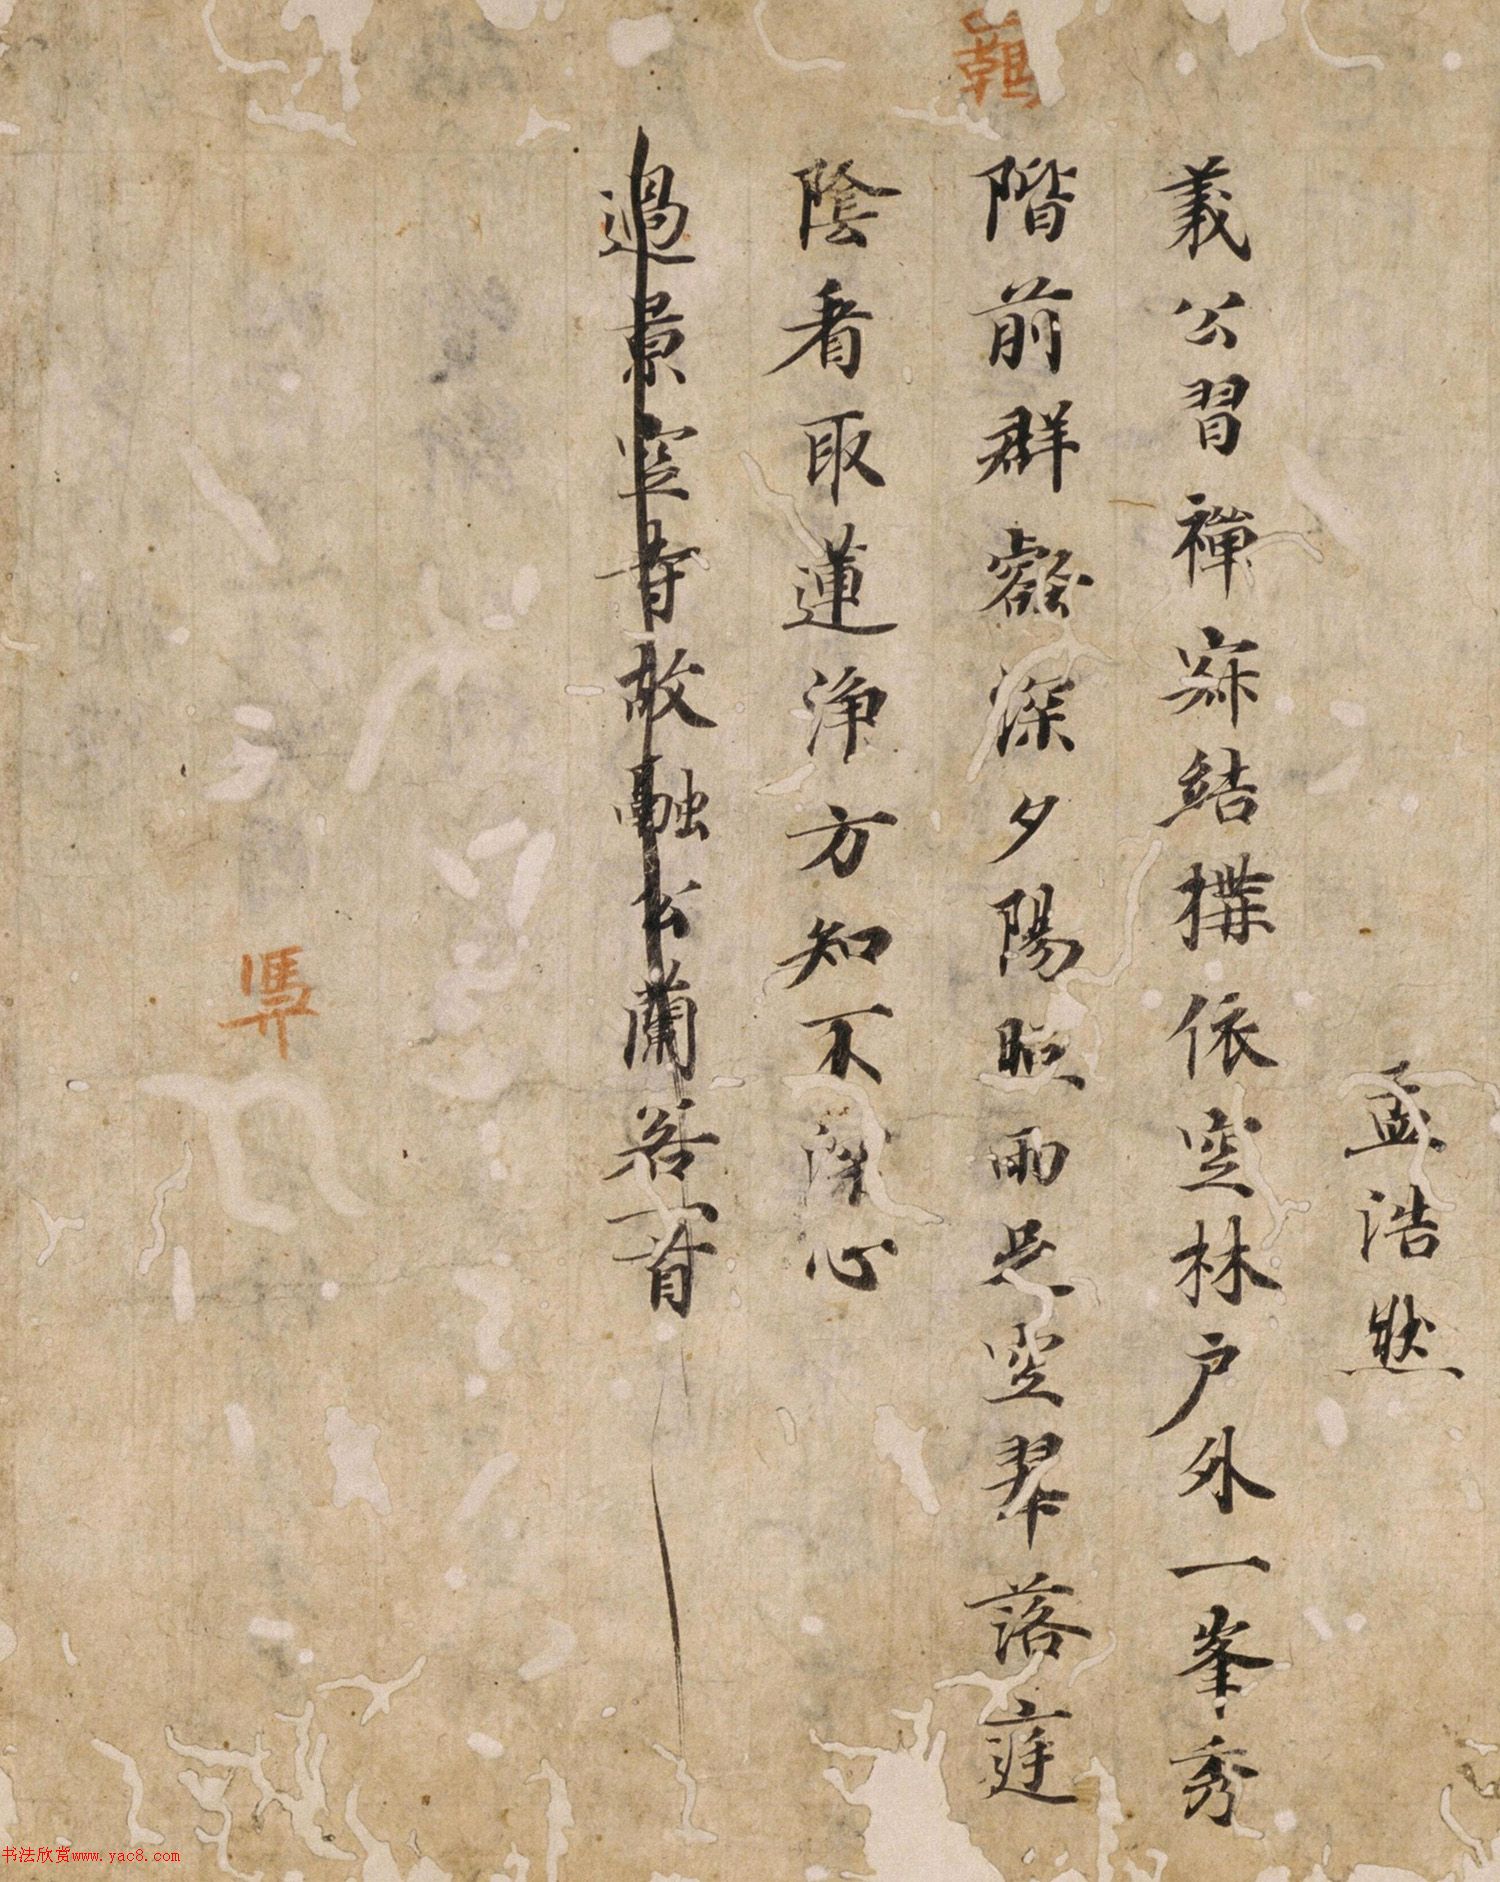 孟浩然
義公習禪寂結構依空林户外一峯秀
階前群壑深夕陽照雨足空翠落庭
陰看取蓮浄方知不深心
過景空寺故融公蘭若一首
书法欣赏www.yac8.com